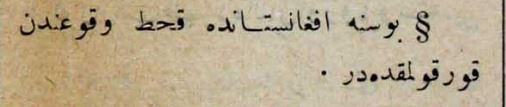 § بوسنه افغانستانده قحط وقوعندن
قورقولمقده‌در .